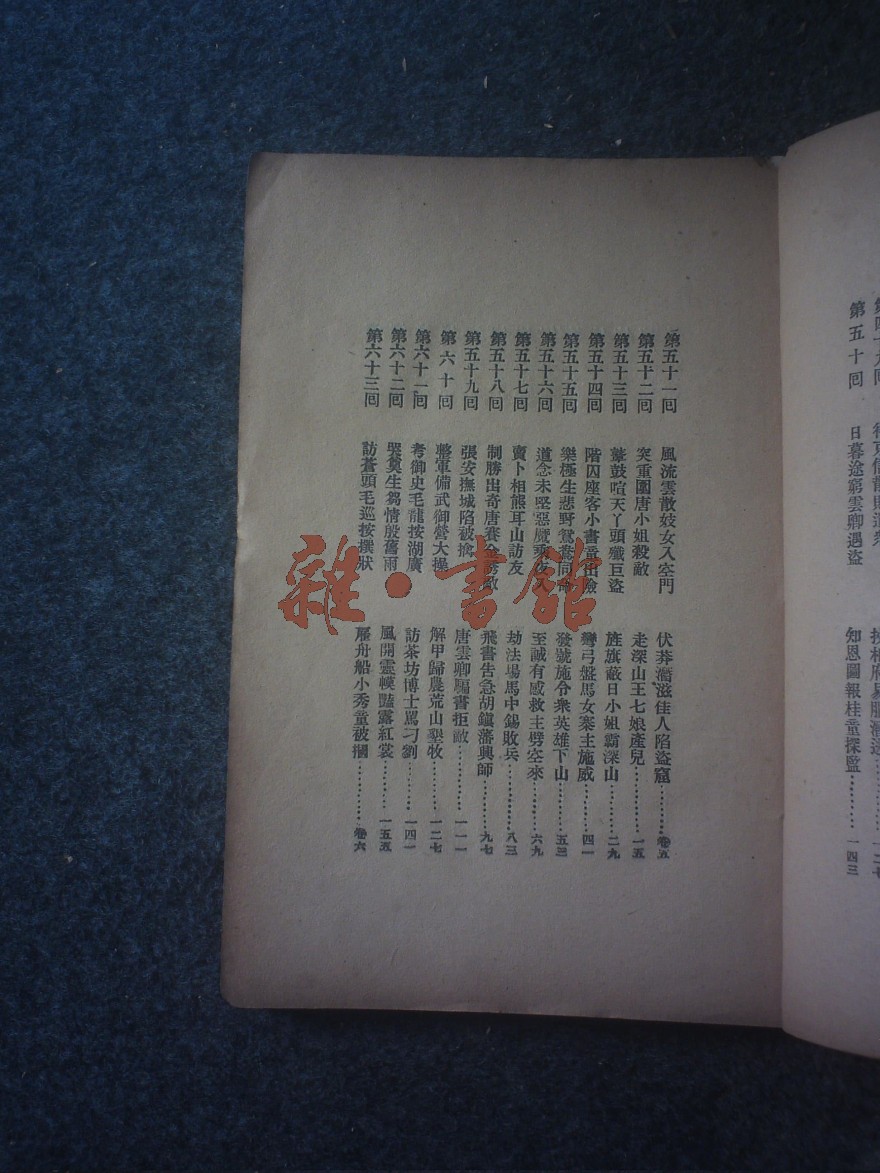 第五十回 日暮途窮雲卿遇盜 知恩圖報桂童探監…………一四三
第五十一回 風流雲散妓女入空門 伏莽潛滋佳人陷盜窟………卷五
第五十二回 突重圍唐小姐殺敵 走深山王七娘產兒…………一五
第五十三回 鼙鼓喧天丫頭殲巨盜 旌旗蔽日小姐霸深山………二九
第五十四回 階囚座客小書童出險 彎弓盤馬女寨主施威………四一
第五十五回 樂極生悲野鴛鴦同命 發號施令衆英雄下山………五三
第五十六回 道念未堅惡魔乘夜入 至誠有感救主劈空來………六九
第五十七回 賣卜相熊耳山訪友 劫法場馬中錫敗兵…………八三
第五十八回 制勝出奇唐賽金誘敵 飛書告急胡鎮藩興師………九七
第五十九回 張安撫城陷被擒 唐雲卿騙書拒敵…………一一一
第六十回 整軍備武御營大操 解甲歸農荒山墾牧…………一二七
第六十一回 考御史毛龍按湖廣 訪茶坊博士罵刁劉…………一四一
第六十二回 哭奠生芻情殷舊雨 風開靈幙豔露紅裳…………一五五
第六十三回 訪蒼頭毛巡按撰狀 雇舟船小秀童被擱…………卷六
雜·書館